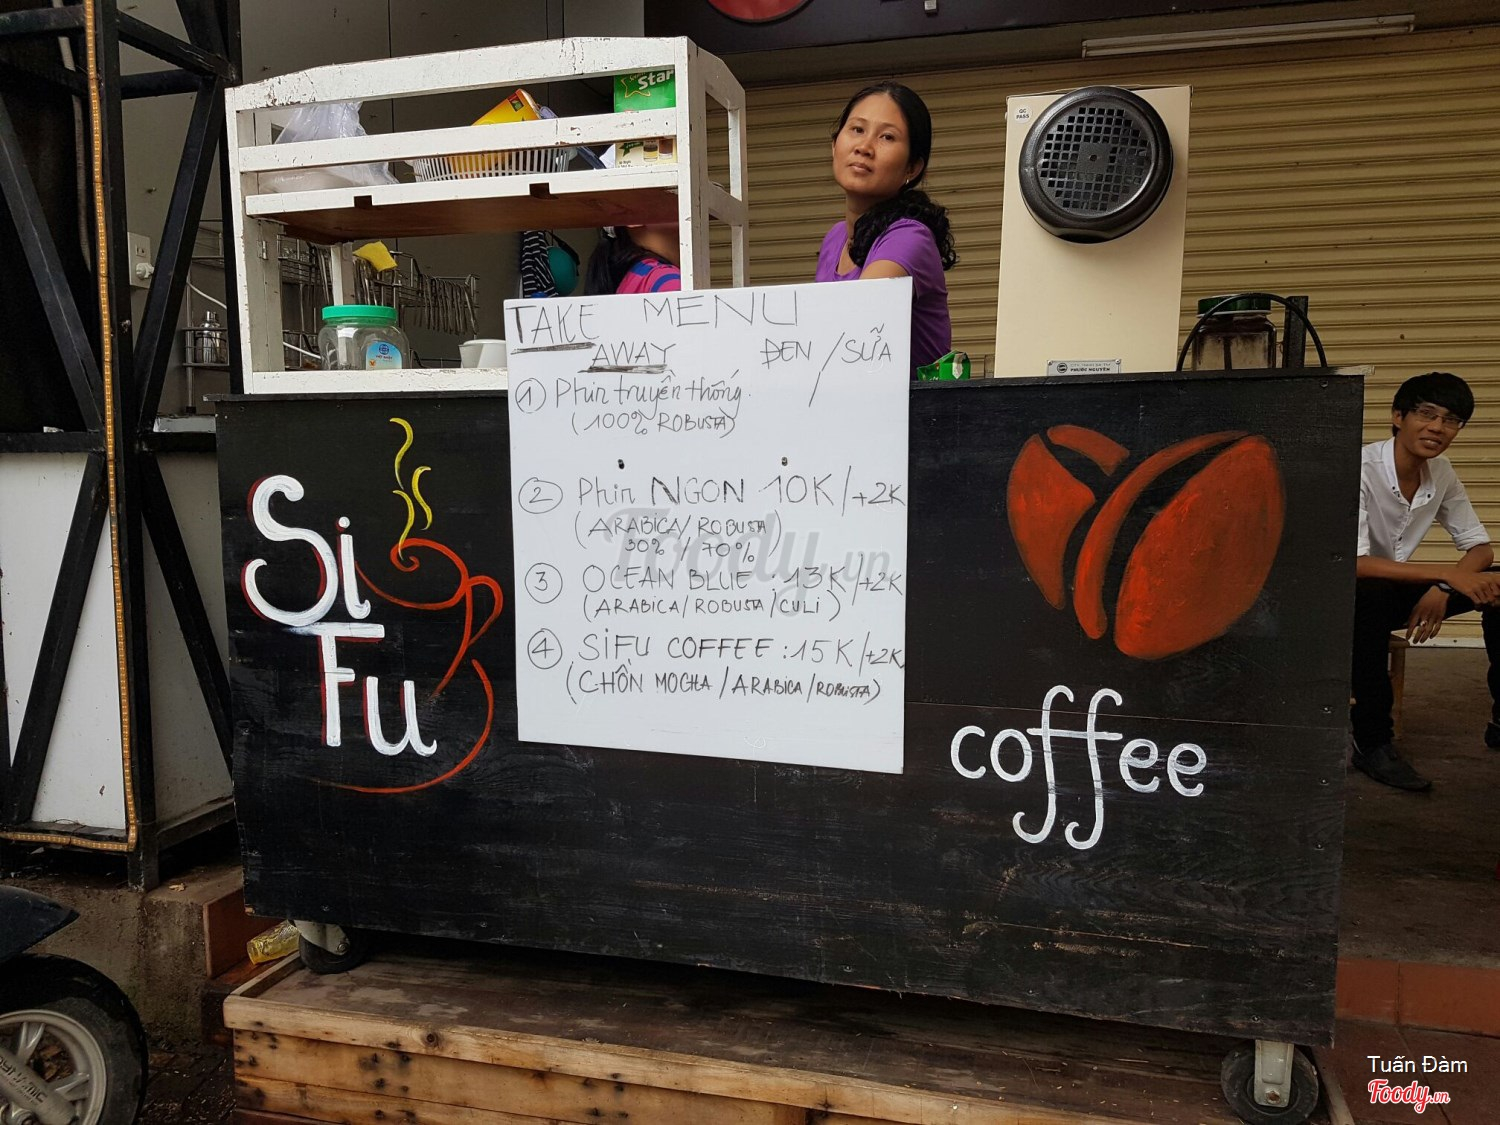 Star
QC
PASS
TAKE MENU
AWAY ĐEN / SỮA
① Phin truyền thống. /
(100% ROBUSTA)
② Phin NGON 10K/+2K
(ARABICA/ROBUSTA
30% / 70%)
③ OCEAN BLUE : 13K/+2K
(ARABICA/ROBUSTA/CULI)
④ SiFU COFFEE : 15K/+2K
(CHỒN MOCHA/ARABICA/ROBUSTA)
PHƯỚC NGUYÊN
Si
Fu
coffee
Foody.vn
Tuấn Đàm
Foody.vn